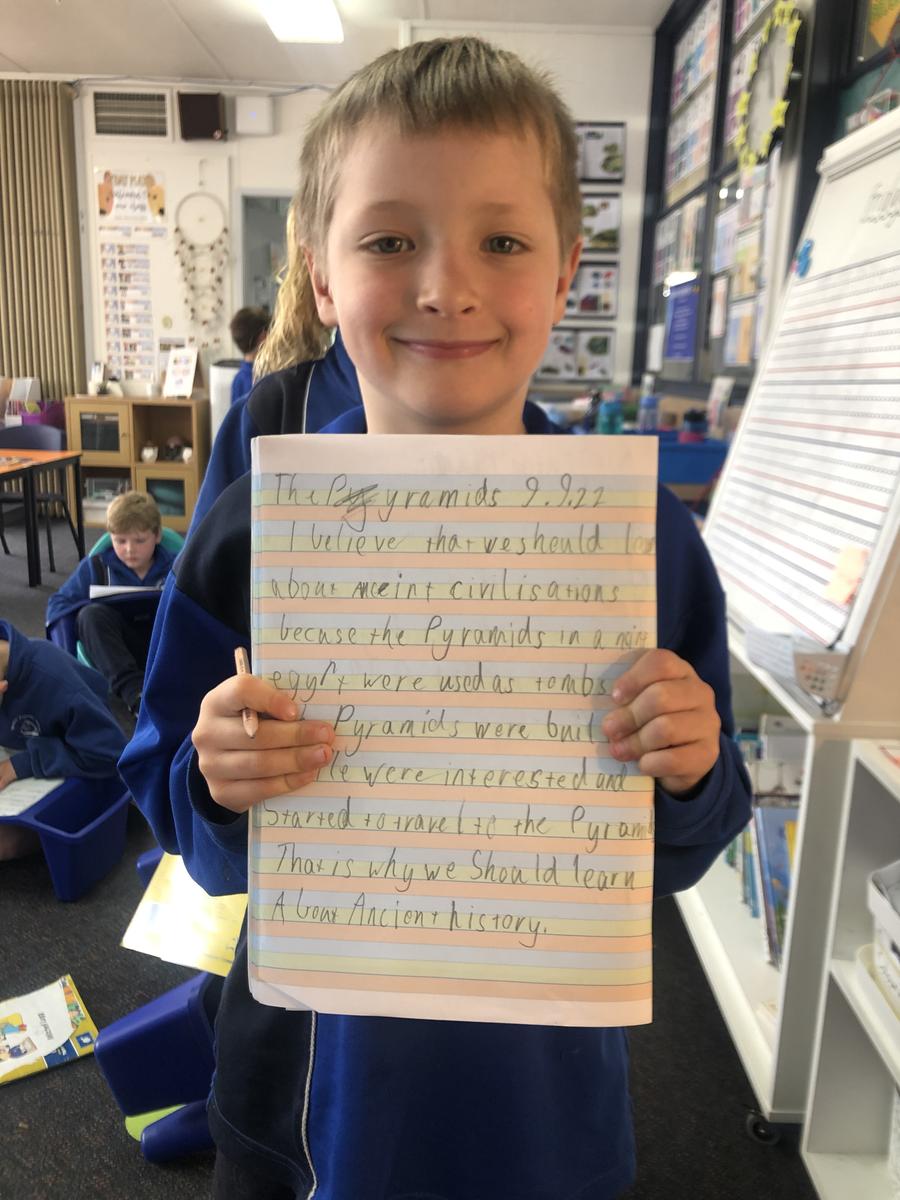 The Pyramids 9.9.22
I velieve that we should
about anceint civilisations
becuse the Pyramids in a
egypt were used as tombs
Pyramids were buil
le were interested and
Started to travel to the Pyram
That is why we Should learn
About Ancient history.